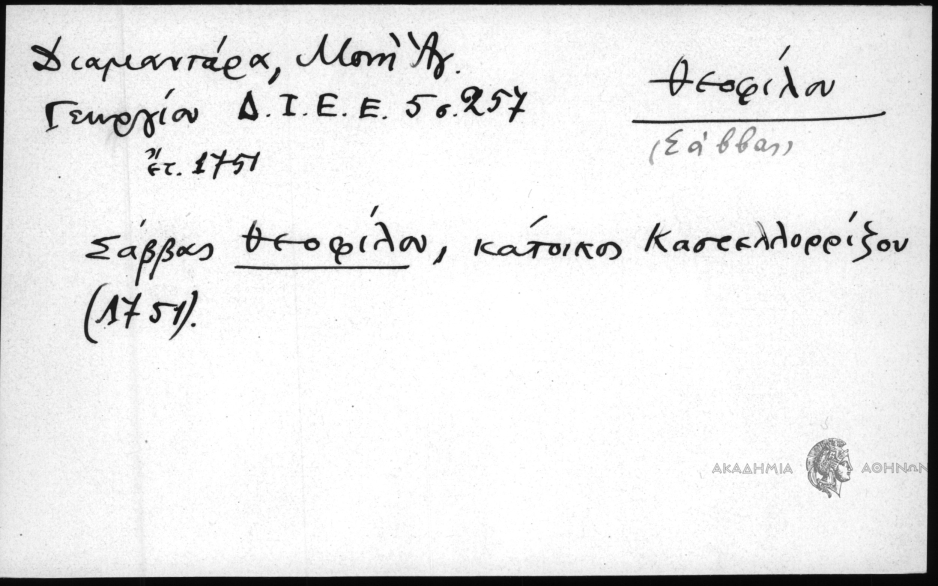 Διαμαντάρα, Μονὴ Ἁγ.
Γεωργίου Δ.Ι.Ε.Ε. 5 σ. 257
ἔτ. 1751
Θεοφίλου
(Σάββας)
Σάββας Θεοφίλου, κάτοικος Καστελλορρίζου
(1751).
ΑΚΑΔΗΜΙΑ ΑΘΗΝΩΝ